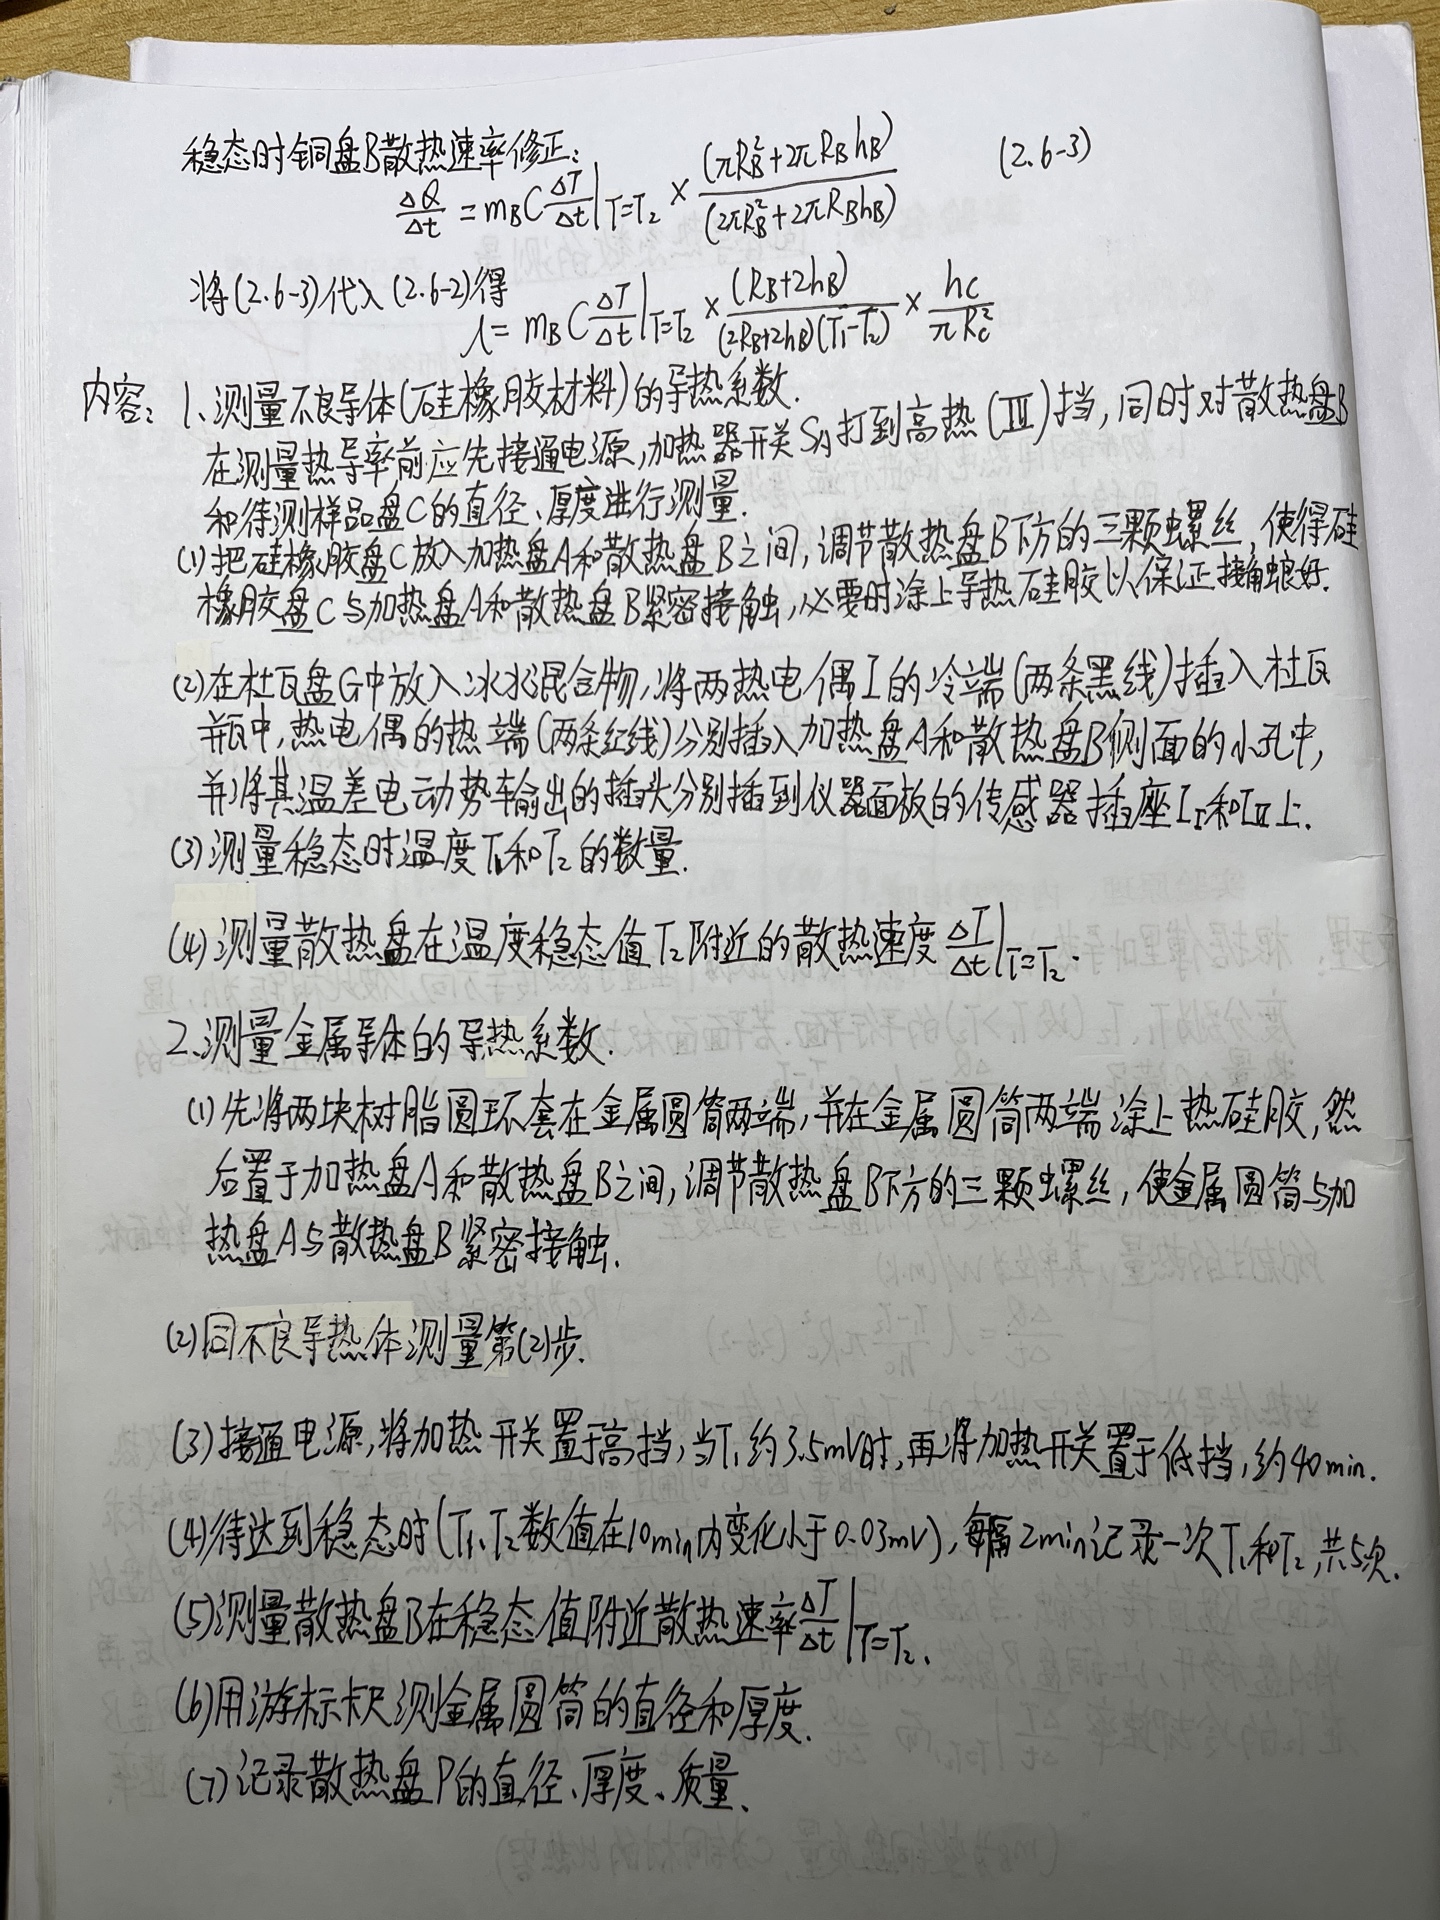 稳态时铜盘B散热速率修正:
ΔQ/Δt = m_B C ΔT/Δt|T=T₂ × (πR_B²+2πR_Bh_B)/(2πR_B²+2πR_Bh_B) (2.6-3)
将(2.6-3)代入(2.6-2)得
λ= m_B C ΔT/Δt|T=T₂ × (R_B+2h_B)/(2R_B+2h_B)(T₁-T₂) × h_C/πR_C²
内容: 1、测量不良导体(硅橡胶材料)的导热系数.
在测量热导率前应先接通电源,加热器开关 打到高热(III)挡,同时对散热盘B
和待测样品盘C的直径、厚度进行测量.
(1)把硅橡胶盘C放入加热盘A和散热盘B之间,调节散热盘B下方的三颗螺丝,使得硅
橡胶盘C与加热盘A和散热盘B紧密接触,必要时涂上导热硅胶以保证接触良好.
(2)在杜瓦盘G中放入冰水混合物,将两热电偶I的冷端(两条黑线)插入杜瓦
瓶中,热电偶的热端(两条红线)分别插入加热盘A和散热盘B侧面的小孔中,
并将其温差电动势输出的插头分别插到仪器面板的传感器插座I_I和I_II上.
(3)测量稳态时温度T₁和T₂的数量.
(4)测量散热盘在温度稳态值T₂附近的散热速度ΔT/Δt|T=T₂.
2.测量金属导体的导热系数.
(1)先将两块树脂圆环套在金属圆筒两端,并在金属圆筒两端涂上热硅胶,然
后置于加热盘A和散热盘B之间,调节散热盘B下方的三颗螺丝,使金属圆筒与加
热盘A与散热盘B紧密接触.
(2)同不良导热体测量第(2)步.
(3)接通电源,将加热开关置于高挡,当T₁约3.5mV时,再将加热开关置于低挡,约40min.
(4)待达到稳态时(T₁、T₂数值在10min内变化小于0.03mV),每隔2min记录一次T₁和T₂,共5次.
(5)测量散热盘B在稳态值附近散热速率ΔT/Δt|T=T₂.
(6)用游标卡尺测金属圆筒的直径和厚度.
(7)记录散热盘P的直径、厚度、质量.